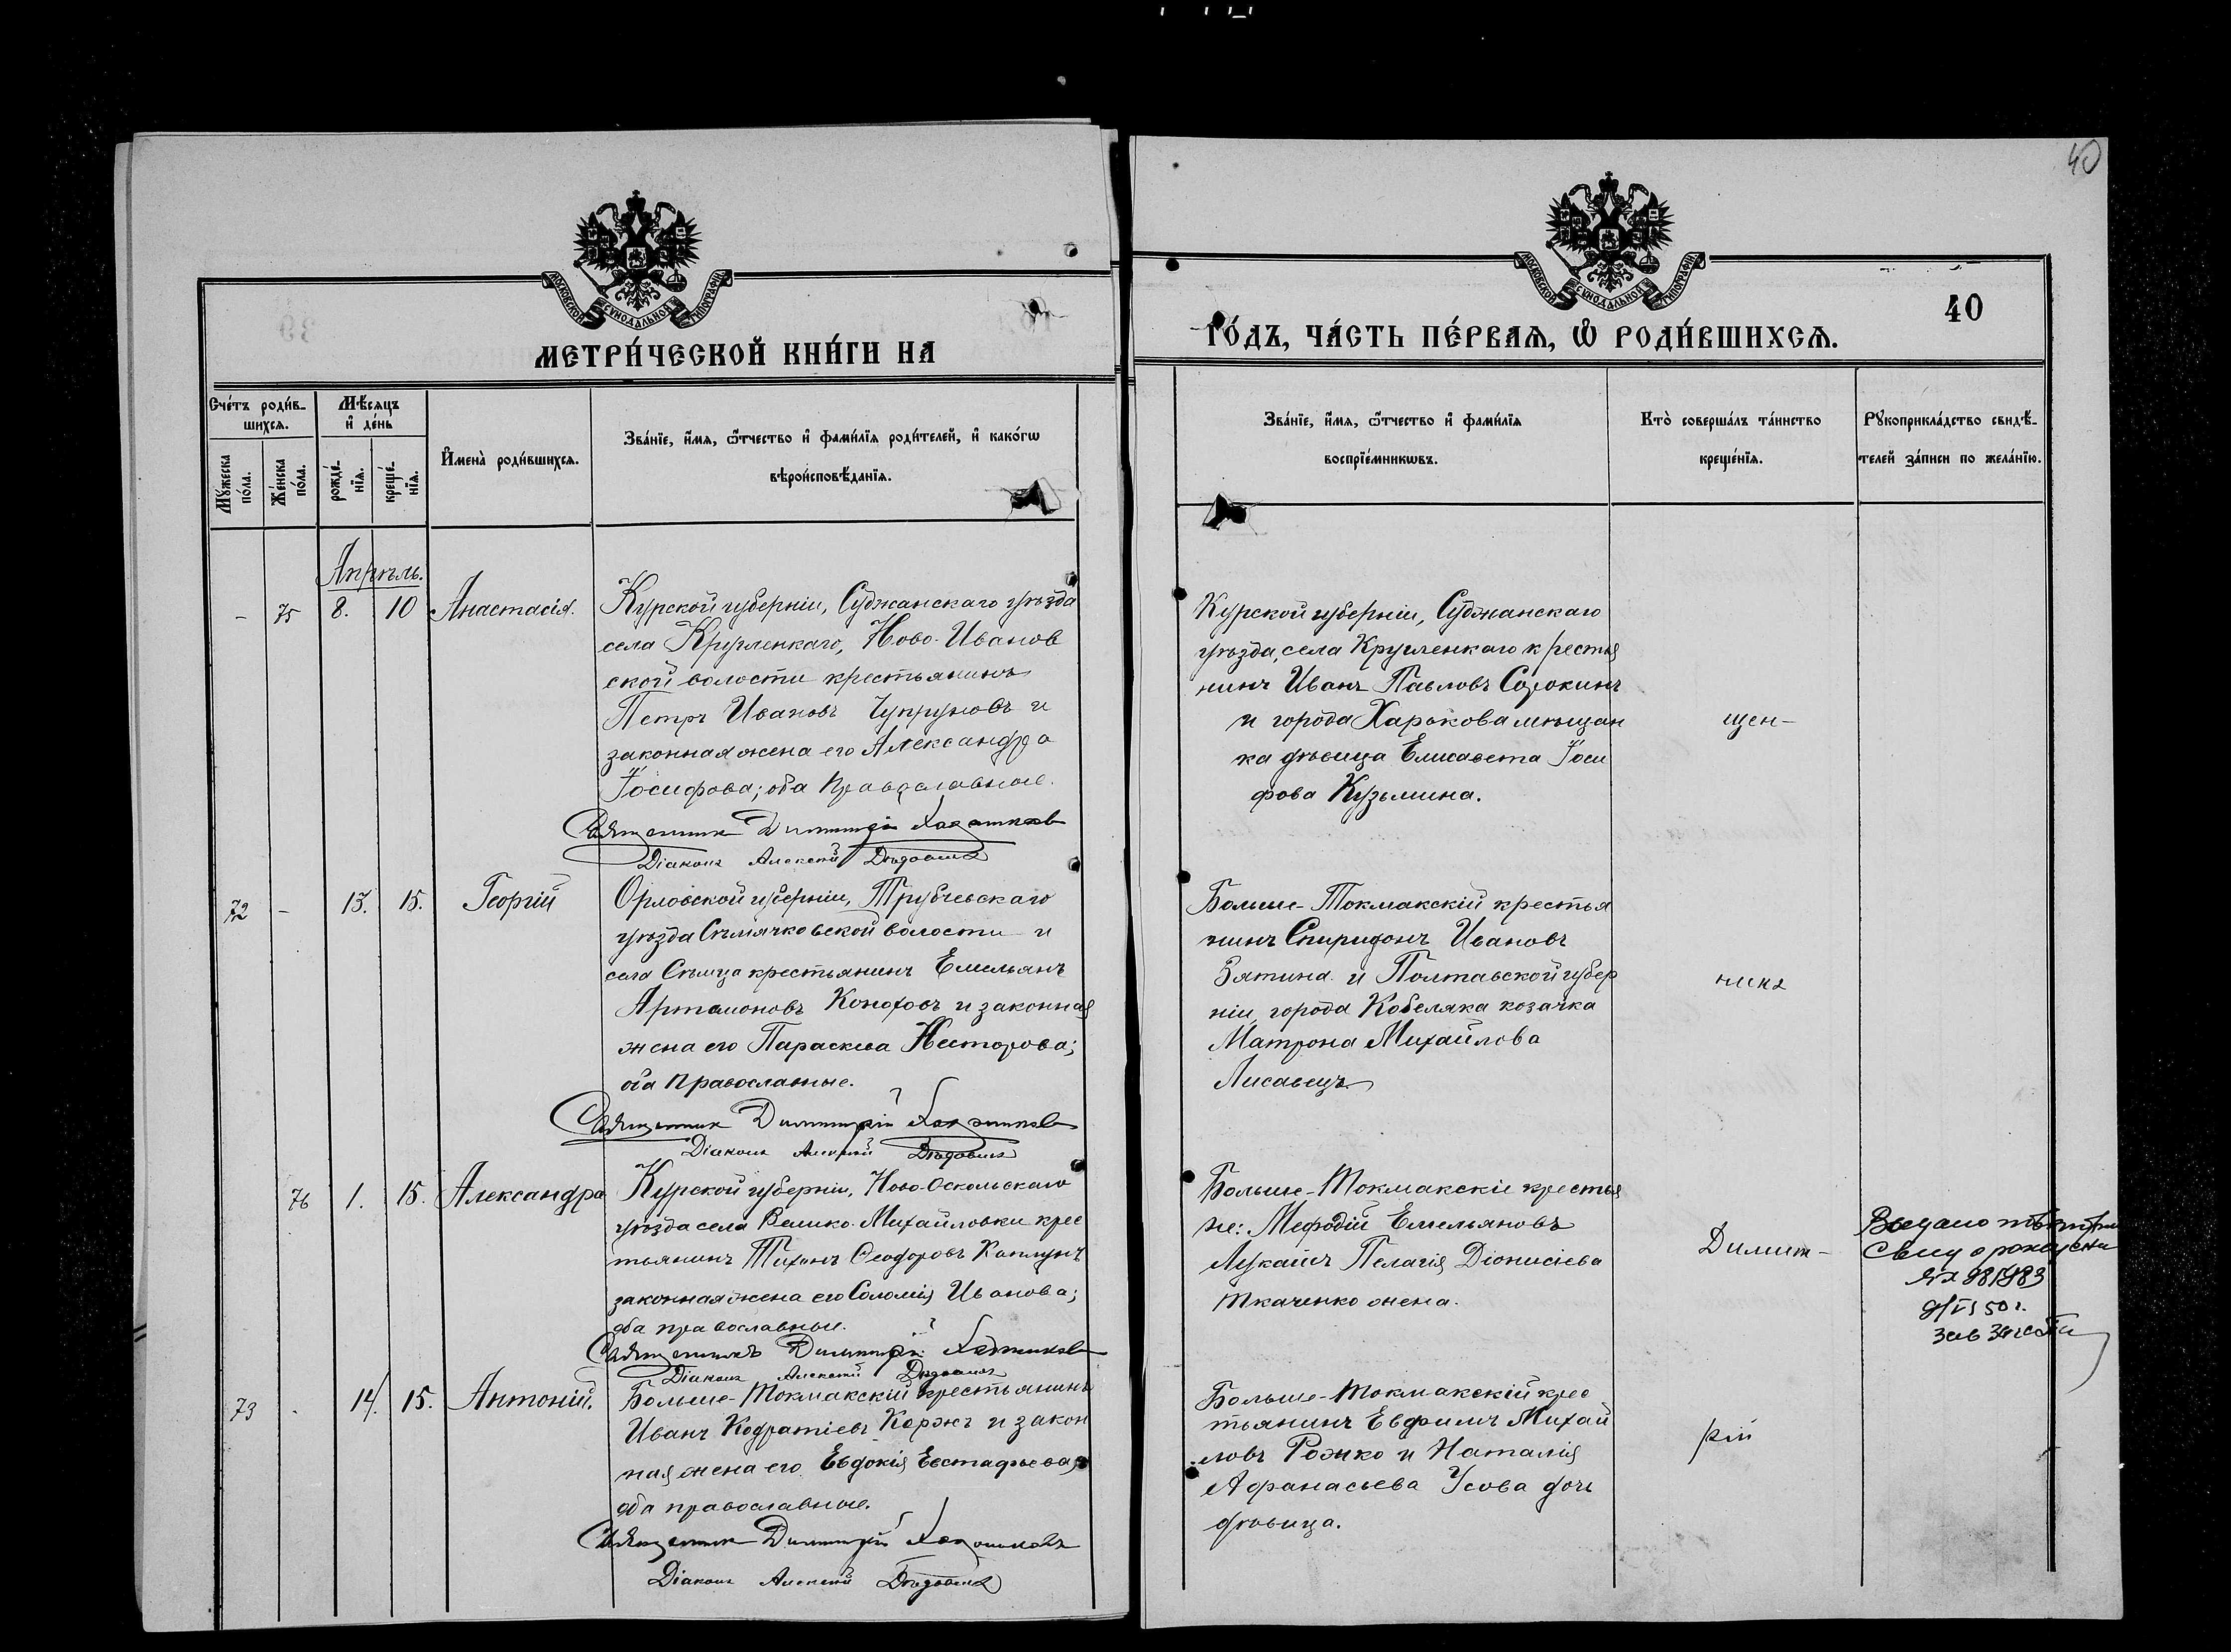 40
МОСКОВСКОЙ СѴНОДАЛЬНОЙ ТИПОГРАФІИ
МЕТРИ́ЧЕСКОЙ КНИ́ГИ НА
Сче́тъ роди́в-
шихсѧ.
Мꙋ́жеска по́ла.
Же́нска по́ла.
Мѣ́сѧцъ и҆ де́нь
рожде́-
нїѧ.
креще́-
нїѧ.
И҆мена̀ роди́вшихсѧ.
Зва́нїе, и҆́мѧ, ѻ҆́тчество и҆ фами́лїѧ роди́телей, и҆ како́гѡ
вѣроисповѣ́данїѧ.
Апрѣль.
- 75 8. 10 Анастасія.
Курской губерніи, Суджанскаго уѣзда
села Кругленкаго, Ново-Иванов
ской волости крестьянинъ
Петръ Ивановъ Чупруновъ и
законная жена его Александра
Іосифова; оба православные.
Священникъ Димитрій
Діаконъ Алексѣй
72 - 13. 15. Георгій
Орловской губерніи, Трубчевскаго
уѣзда Сѣмячковской волости и
села Сѣмца крестьянинъ Емельянъ
Артамоновъ Коноховъ и законная
жена его Параскева Несторова;
оба православные.
Священникъ Димитрій
Діаконъ Алексѣй
76 1. 15. Александра
Курской губерніи, Ново-Оскольскаго
уѣзда села Велико-Михайловки крес
тьянинъ Тихонъ Ѳеодоровъ Каплунъ
законная жена его Соломія Иванова;
оба православные.
Священникъ Димитрій
Діаконъ Алексѣй
73 - 14. 15. Антоній.
Больше-Токмакскій крестьянинъ
Иванъ Кодратіевъ Коржъ и закон
ная жена его Евдокія Евстафьева;
оба православные.
Священникъ Димитрій
Діаконъ Алексѣй
40
МОСКОВСКОЙ СѴНОДАЛЬНОЙ ТИПОГРАФІИ
ГО́ДЪ, ЧА́СТЬ ПЕ́РВАѦ, Ѽ РОДИ́ВШИХСѦ.
Зва́нїе, и҆́мѧ, ѻ҆́тчество и҆ фами́лїѧ
воспрїе́мникѡвъ.
Кто̀ соверша́лъ та́инство
креще́нїѧ.
Рꙋкоприкла́дство свидѣ́-
телей за́писи по жела́нїю.
Курской губерніи, Суджанскаго
уѣзда, села Кругленкаго крестья
нинъ Иванъ Павловъ Сорокинъ
и города Харькова мѣщан
ка дѣвица Елисавета Іоси
фова Кузьмина.
щен-
Больше-Токмакскій крестья
нинъ Спиридонъ Ивановъ
Зятина и Полтавской губер
ніи, города Кобеляка козачка
Матрона Михайлова
Лисавецъ
никъ
Больше-Токмакскіе крестья
не: Мефодій Емельяновъ
Лукашъ Пелагія Діонисіева
Ткаченко жена.
Димит-
Выдано повторн
свид о рождении
Больше-Токмакскій крес
тьянинъ Евфимъ Михай
ловъ Рожко и Наталія
Афанасьева Усова дочь
дѣвица.
рій